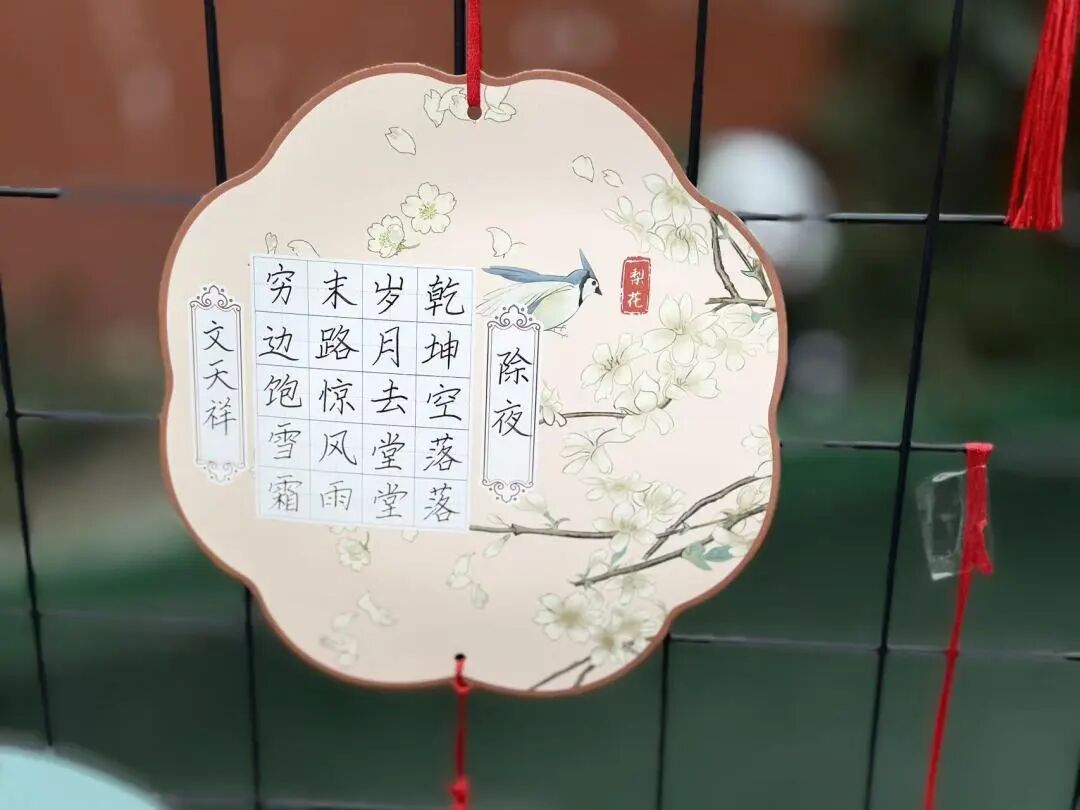 梨花
除夜
乾坤空落落
岁月去堂堂
末路惊风雨
穷边饱雪霜
文天祥